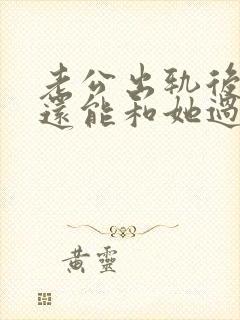 老公出軌後
還能和她過
黃靈